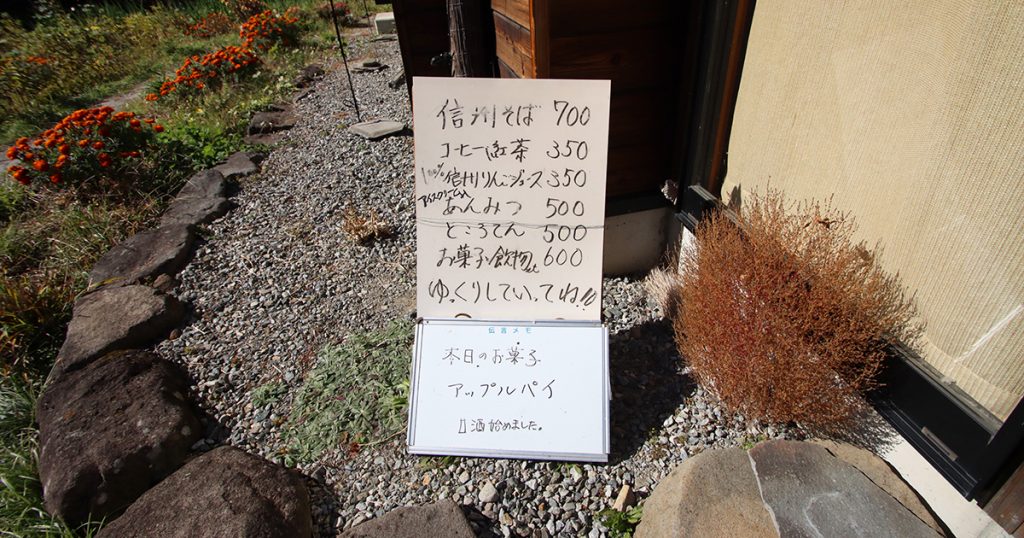 信州そば 700
コーヒー紅茶 350
100%信州りんごジュース 350
アイスクリーム入
あんみつ 500
ところてん 500
お菓子飲物 600
ゆっくりしていってね!!
伝言メモ
本日のお菓子
アップルパイ
酒始めました。